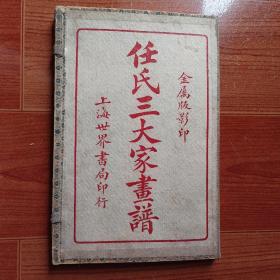 金属版影印
任氏三大家畫譜
上海世界書局印行